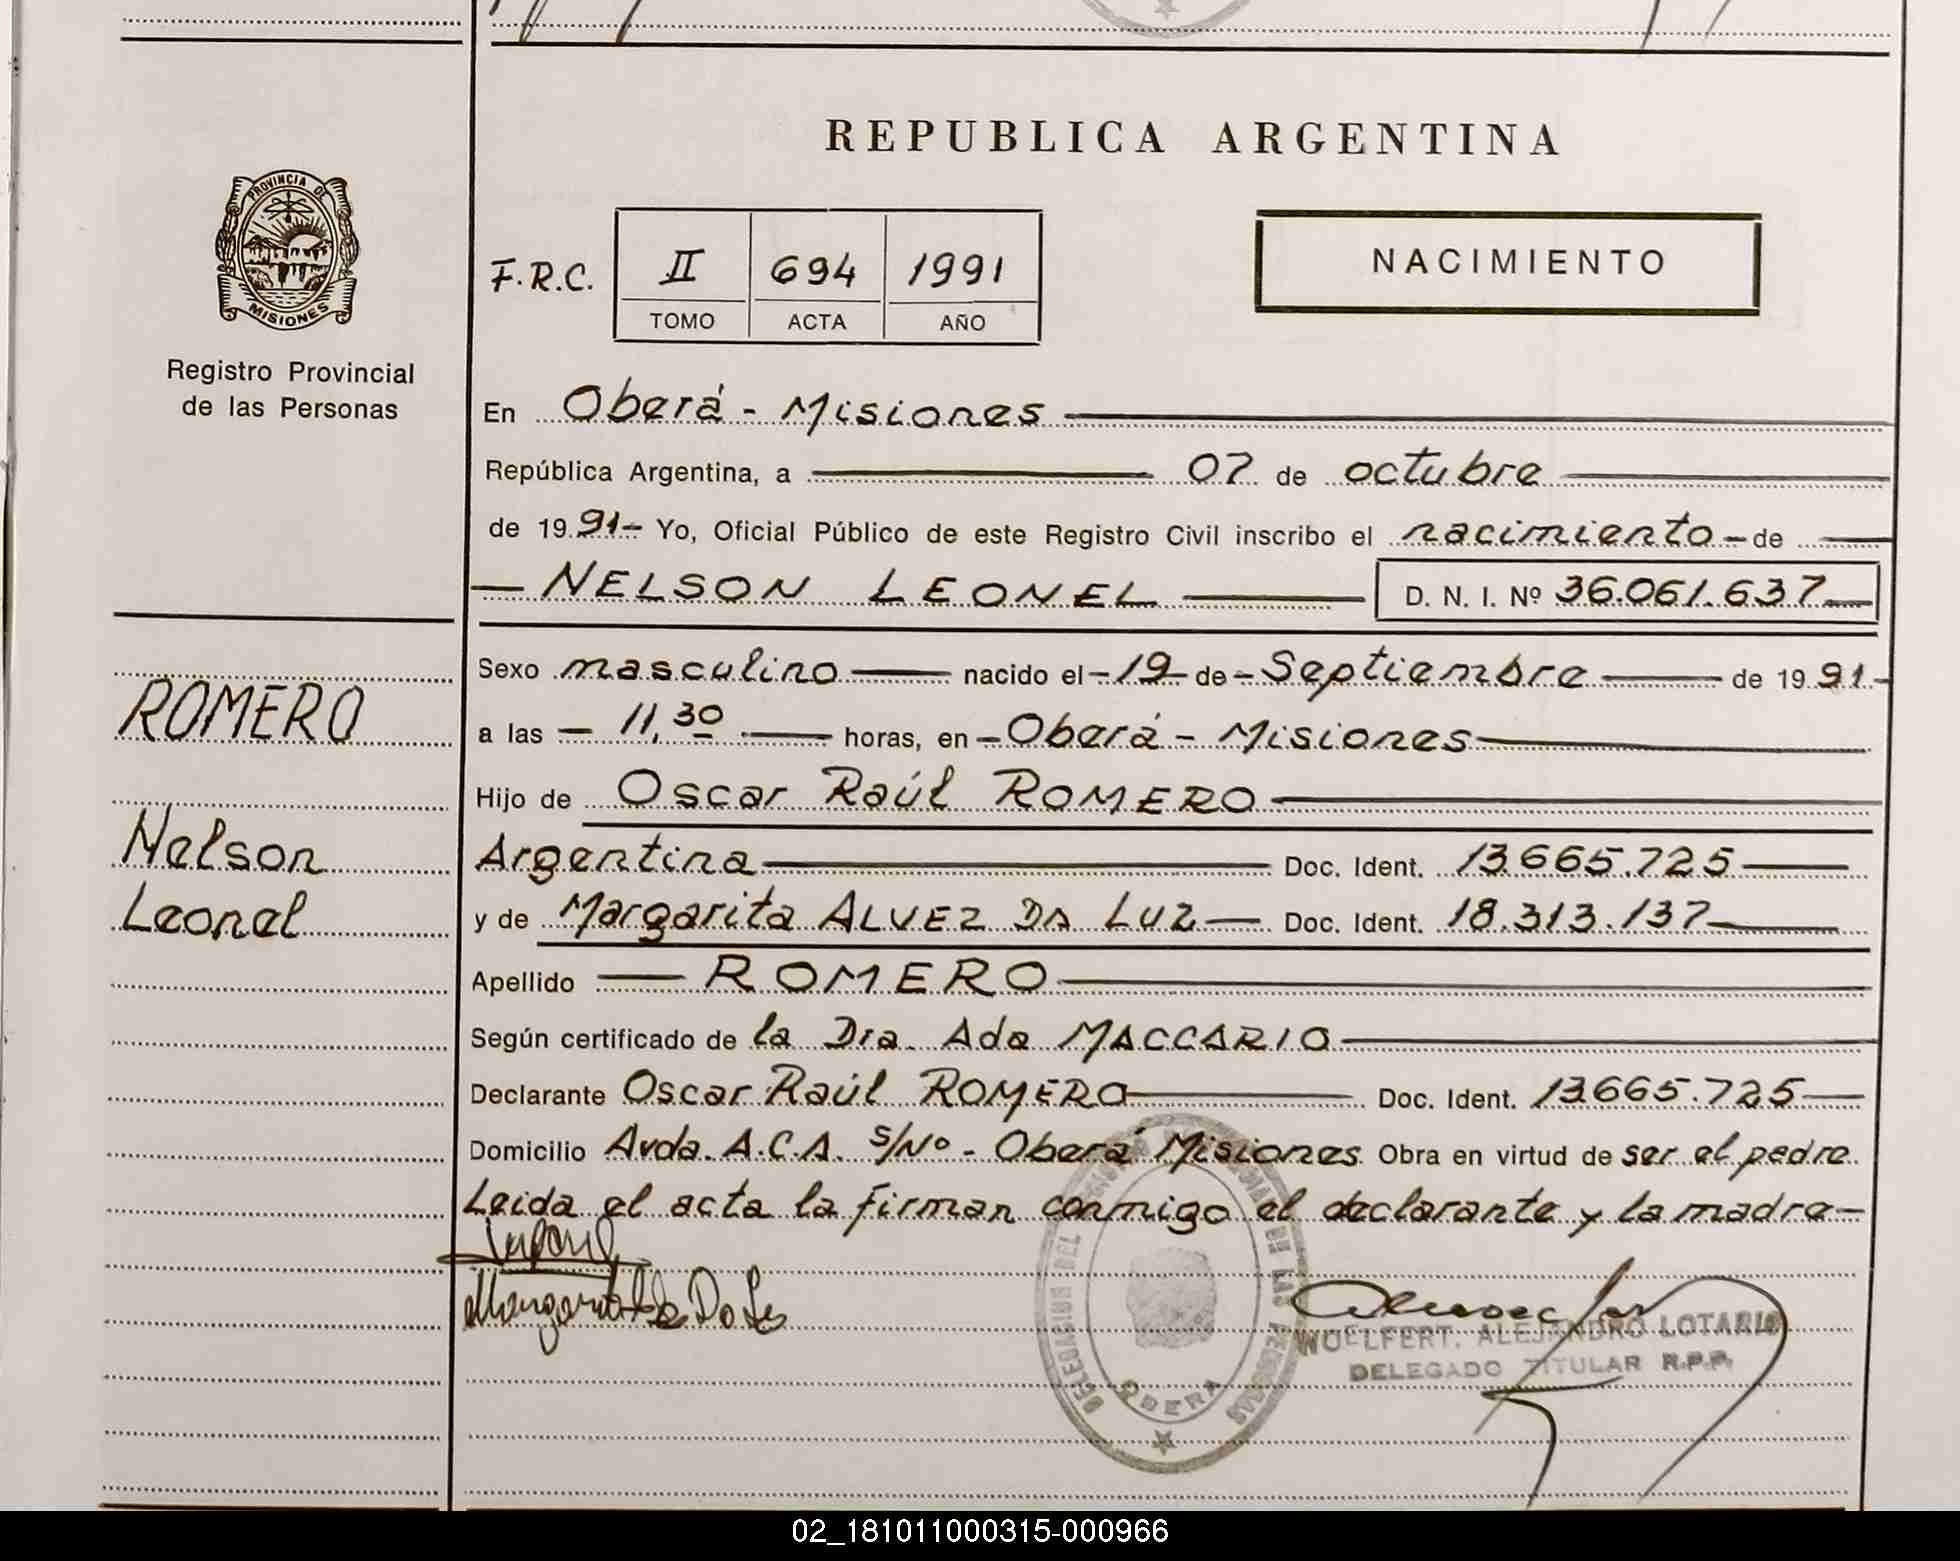 REPUBLICA ARGENTINA
PROVINCIA DE
MISIONES
Registro Provincial
de las Personas
F.R.C. II 694 1991
TOMO ACTA AÑO
NACIMIENTO
En Oberá - Misiones
República Argentina, a 07 de octubre
de 19 91- Yo, Oficial Público de este Registro Civil inscribo el nacimiento - de
- NELSON LEONEL - D. N. I. Nº 36.061.637
Sexo masculino nacido el - 19 de - Septiembre de 19 91-
a las - 11,30 horas, en - Oberá - Misiones
Hijo de Oscar Raúl ROMERO
Argentina Doc. Ident. 13.665.725
y de Margarita ALVEZ DA LUZ Doc. Ident. 18.313.137
Apellido ROMERO
Según certificado de la Dra. Ada MACCARIO
Declarante Oscar Raúl ROMERO Doc. Ident. 13.665.725
Domicilio Avda. A.C.A. S/Nº - Oberá Misiones Obra en virtud de ser el padre
Leida el acta la firman conmigo el declarante y la madre-
ROMERO
Nelson
Leonel
WUELFERT, ALEJANDRO LOTARIO
DELEGADO TITULAR R.P.P.
OBERA
02_181011000315-000966